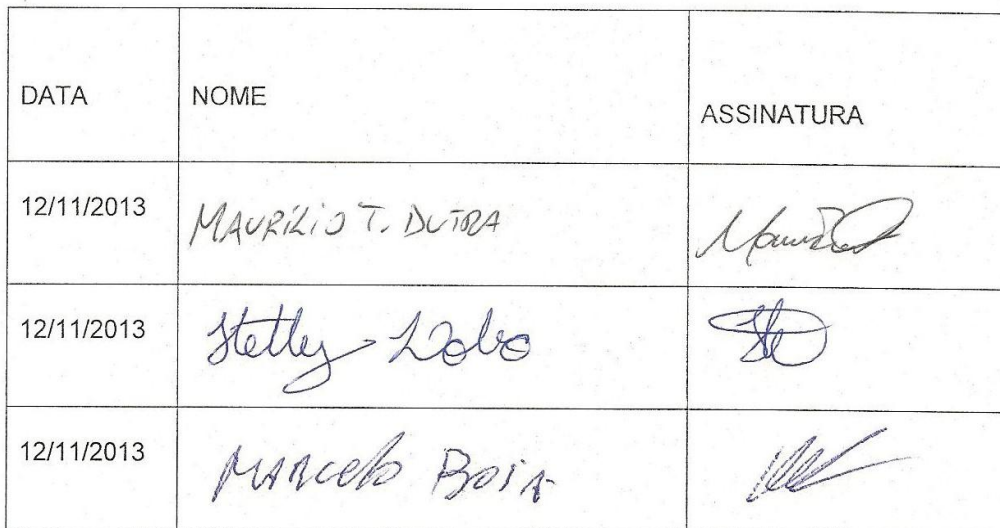 DATA NOME ASSINATURA
12/11/2013 MAURÍLIO T. DUTRA
12/11/2013 Stelley Lobo
12/11/2013 MARCELO